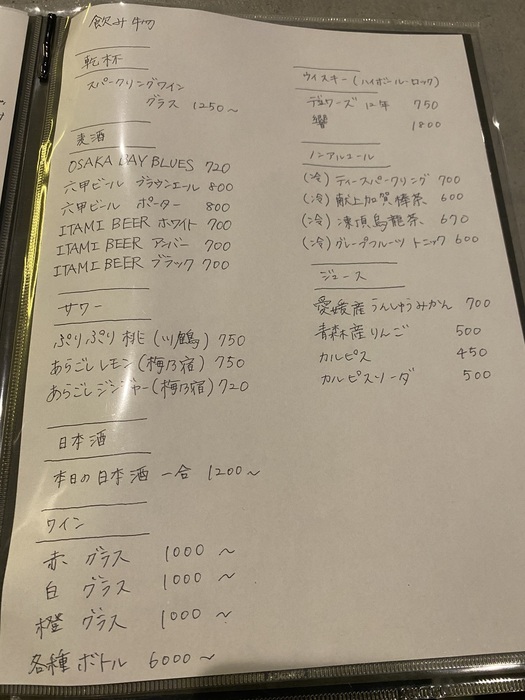 飲み物
乾杯
スパークリングワイン
グラス 1250〜
麦酒
OSAKA BAY BLUES 720
六甲ビール ブラウンエール 800
六甲ビール ポーター 800
ITAMI BEER ホワイト 700
ITAMI BEER アンバー 700
ITAMI BEER ブラック 700
サワー
ぷりぷり桃 (川鶴) 750
あらごしレモン (梅乃宿) 750
あらごしジンジャー (梅乃宿) 720
日本酒
本日の日本酒 一合 1200〜
ワイン
赤 グラス 1000 〜
白 グラス 1000 〜
橙 グラス 1000 〜
各種 ボトル 6000 〜
ウイスキー (ハイボール・ロック)
デュワーズ 12年 750
響 1800
ノンアルコール
(冷) ティースパークリング 700
(冷) 献上加賀棒茶 600
(冷) 凍頂烏龍茶 670
(冷) グレープフルーツ トニック 600
ジュース
愛媛産うんしゅうみかん 700
青森産りんご 500
カルピス 450
カルピスソーダ 500